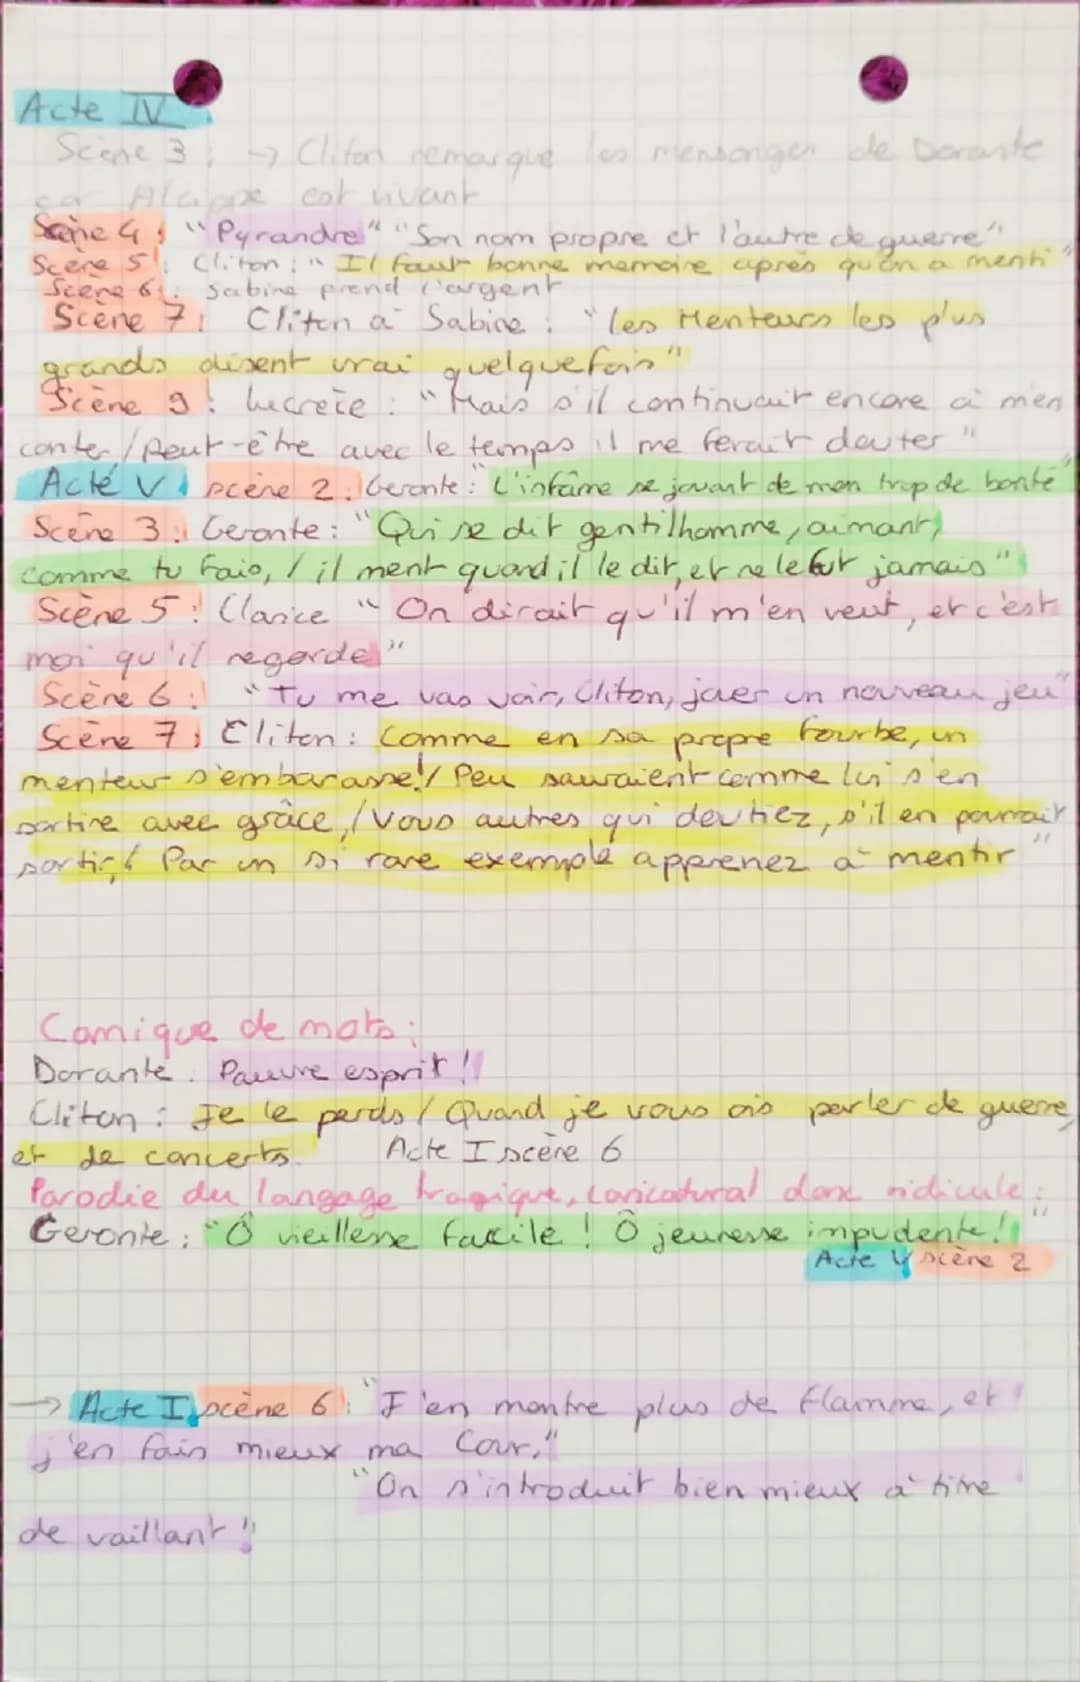 Acte IV
Scène 3 : → Cliton remarque les mensonges de Dorante
car Alcippe est vivant
Scène 4 : "Pyrandre" "Son nom propre et l'autre de guerre"
Scène 5 : Cliton : " Il faut bonne memoire après qu'on a menti"
Scène 6 : Sabine prend l'argent
Scène 7 : Cliton à Sabine : "les Menteurs les plus
grands disent vrai quelquefois"
Scène 9 : Lucrèce : "Mais s'il continuait encore à m'en
conter / Peut-être avec le temps il me ferait douter"
Acte V scène 2 : Geronte : "L'infâme se jouant de mon trop de bonté"
Scène 3 : Geronte : "Qui se dit gentilhomme, aimant,
comme tu fais, / il ment quand il le dit, et ne le fut jamais"
Scène 5 : Clarice "On dirait qu'il m'en veut, et c'est
moi qu'il regarde"
Scène 6 : "Tu me vas voir, Cliton, jouer un nouveau jeu"
Scène 7 : Cliton : Comme en sa propre fourbe, un
menteur s'embarasse ! / Peu sauraient comme lui s'en
sortire avec grâce, / Vous autres qui doutiez, s'il en pourrait
sortir, / Par un si rare exemple apprenez à mentir "
Comique de mots :
Dorante : Pauvre esprit !
Cliton : Je le perds / Quand je vous ois parler de guerre,
et de concerts. Acte I scène 6
Parodie du langage tragique, caricatural donc ridicule :
Geronte : "Ô vieillesse facile ! Ô jeunesse impudente !"
Acte V scène 2
→ Acte I scène 6 : "J'en montre plus de flamme, et
j'en fais mieux ma Cour,"
"On s'introduit bien mieux à titre
de vaillant"